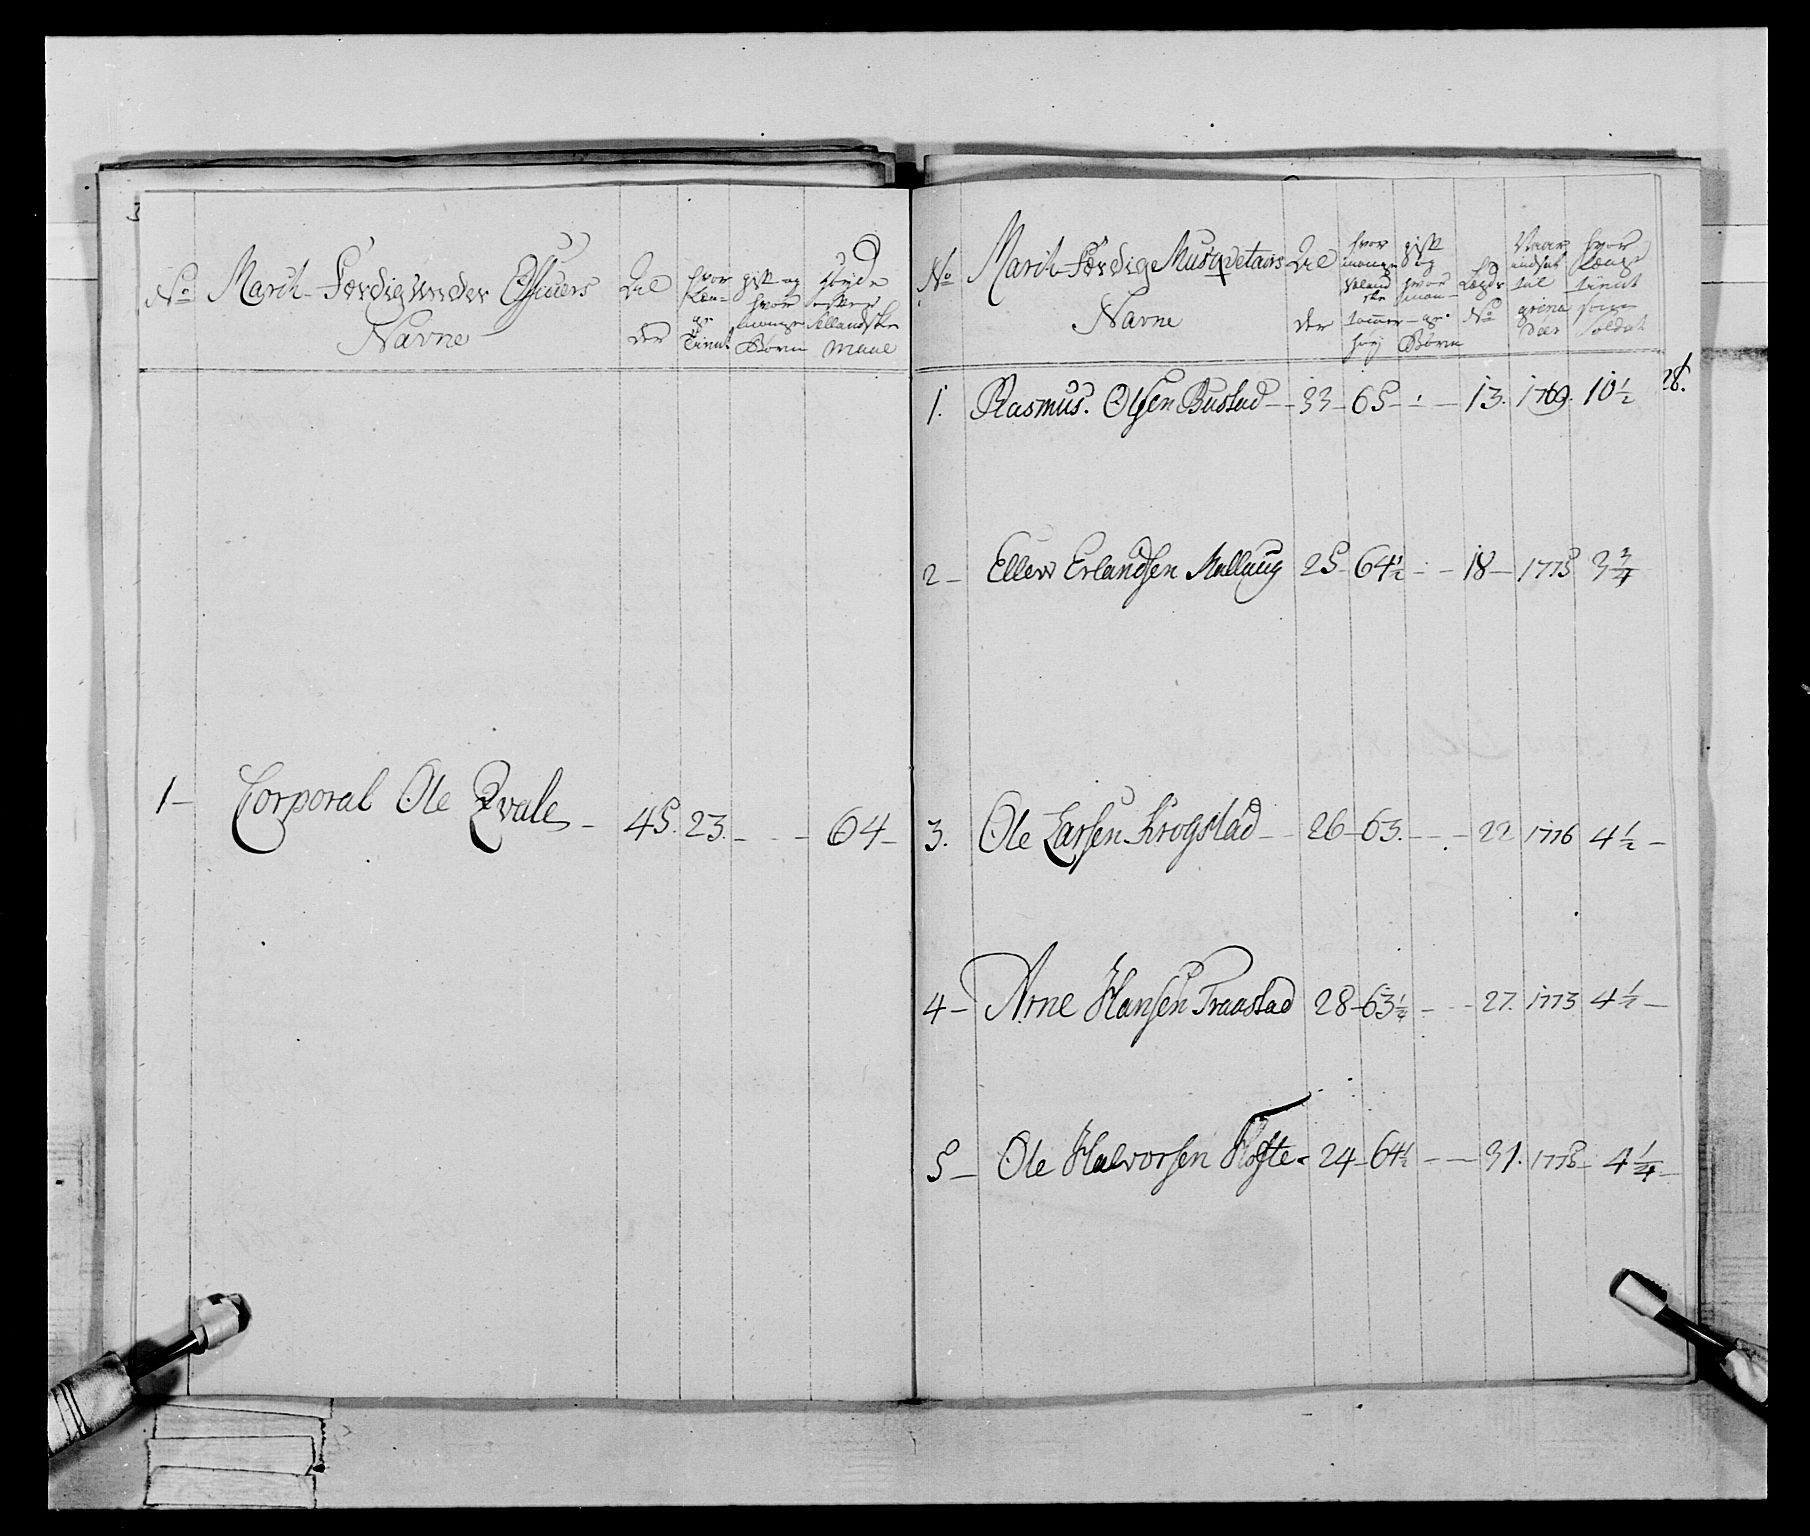 No
Marit-Færdig Under Officiers
Navne
Al
der
hvor
Læn-
ge
Tient
gift og
hvor
mange
Børn
Høyde
efter
Sællandske
maal
1 – Corporal Ole Qvale – 45. 23. – – – 64 –
No
Marit-Færdige Musqvetairs
Navne
Al
der
hvor
mange
Sæland
ske
tommer
høj
gift
og
hvor
man-
ge
Børn
Lægds
No
Naar
indsat
til
grena
dær
hvor
længe
tient
som
soldat
28.
1. Rasmus. Olsen Bustad – 33 – 65 – – 13. 1769. 10 1/2
2 – Ellew Erlandsen Mellaug 25 – 64 1/2 – – 18 – 1775 3 3/4
3. Ole Larsen Krogstad – 26 – 63. – – – 22 1776 4 1/2 –
4 – Arne Hansen Traastad 28 – 63 1/4 – – 27. 1773 4 1/2 –
5 – Ole Halvorsen Tofte – 24 – 64 1/2 – – 31. 1775 – 4 1/4 –